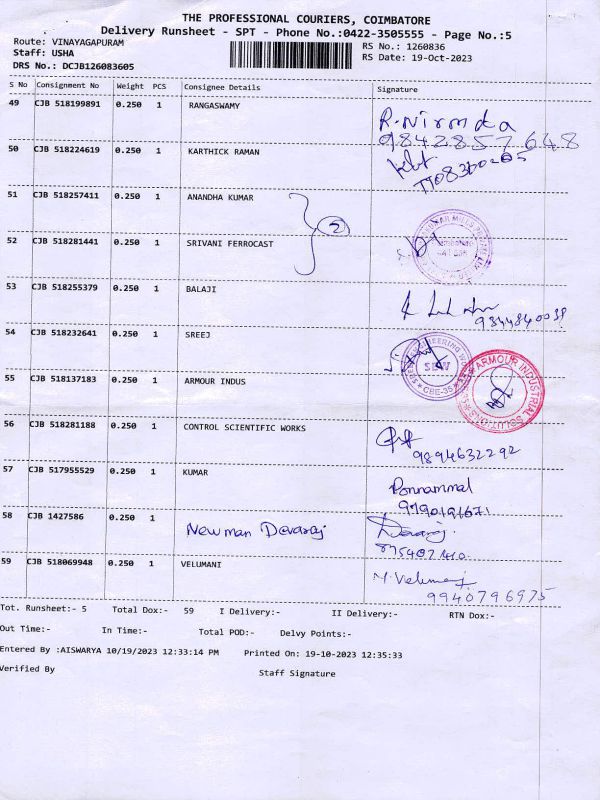 THE PROFESSIONAL COURIERS, COIMBATORE
Delivery Runsheet - SPT - Phone No.:0422-3505555 - Page No.:5
Route: VINAYAGAPURAM
RS No.: 1260836
Staff: USHA
RS Date: 19-Oct-2023
DRS No.: DCJB126083605
S No Consignment No Weight PCS Consignee Details Signature
49 CJB 518199891 0.250 1 RANGASWAMY
R.Nirmala
9842857648
50 CJB 518224619 0.250 1 KARTHICK RAMAN
51 CJB 518257411 0.250 1 ANANDHA KUMAR
2
52 CJB 518281441 0.250 1 SRIVANI FERROCAST
53 CJB 518255379 0.250 1 BALAJI
54 CJB 518232641 0.250 1 SREEJ
SEW
CBE-35
55 CJB 518137183 0.250 1 ARMOUR INDUS
ARMOUR INDUSTRIAL SOLUTIONS
56 CJB 518281188 0.250 1 CONTROL SCIENTIFIC WORKS
9894632292
57 CJB 517955529 0.250 1 KUMAR
Ponnammal
9790191671
58 CJB 1427586 0.250 1 Newman Devaraj
Devaraj
59 CJB 518069948 0.250 1 VELUMANI
M.Velumani
9940796975
Tot. Runsheet:- 5 Total Dox:- 59 I Delivery:- II Delivery:- RTN Dox:-
Out Time:- In Time:- Total POD:- Delvy Points:-
Entered By :AISWARYA 10/19/2023 12:33:14 PM Printed On: 19-10-2023 12:35:33
Verified By Staff Signature